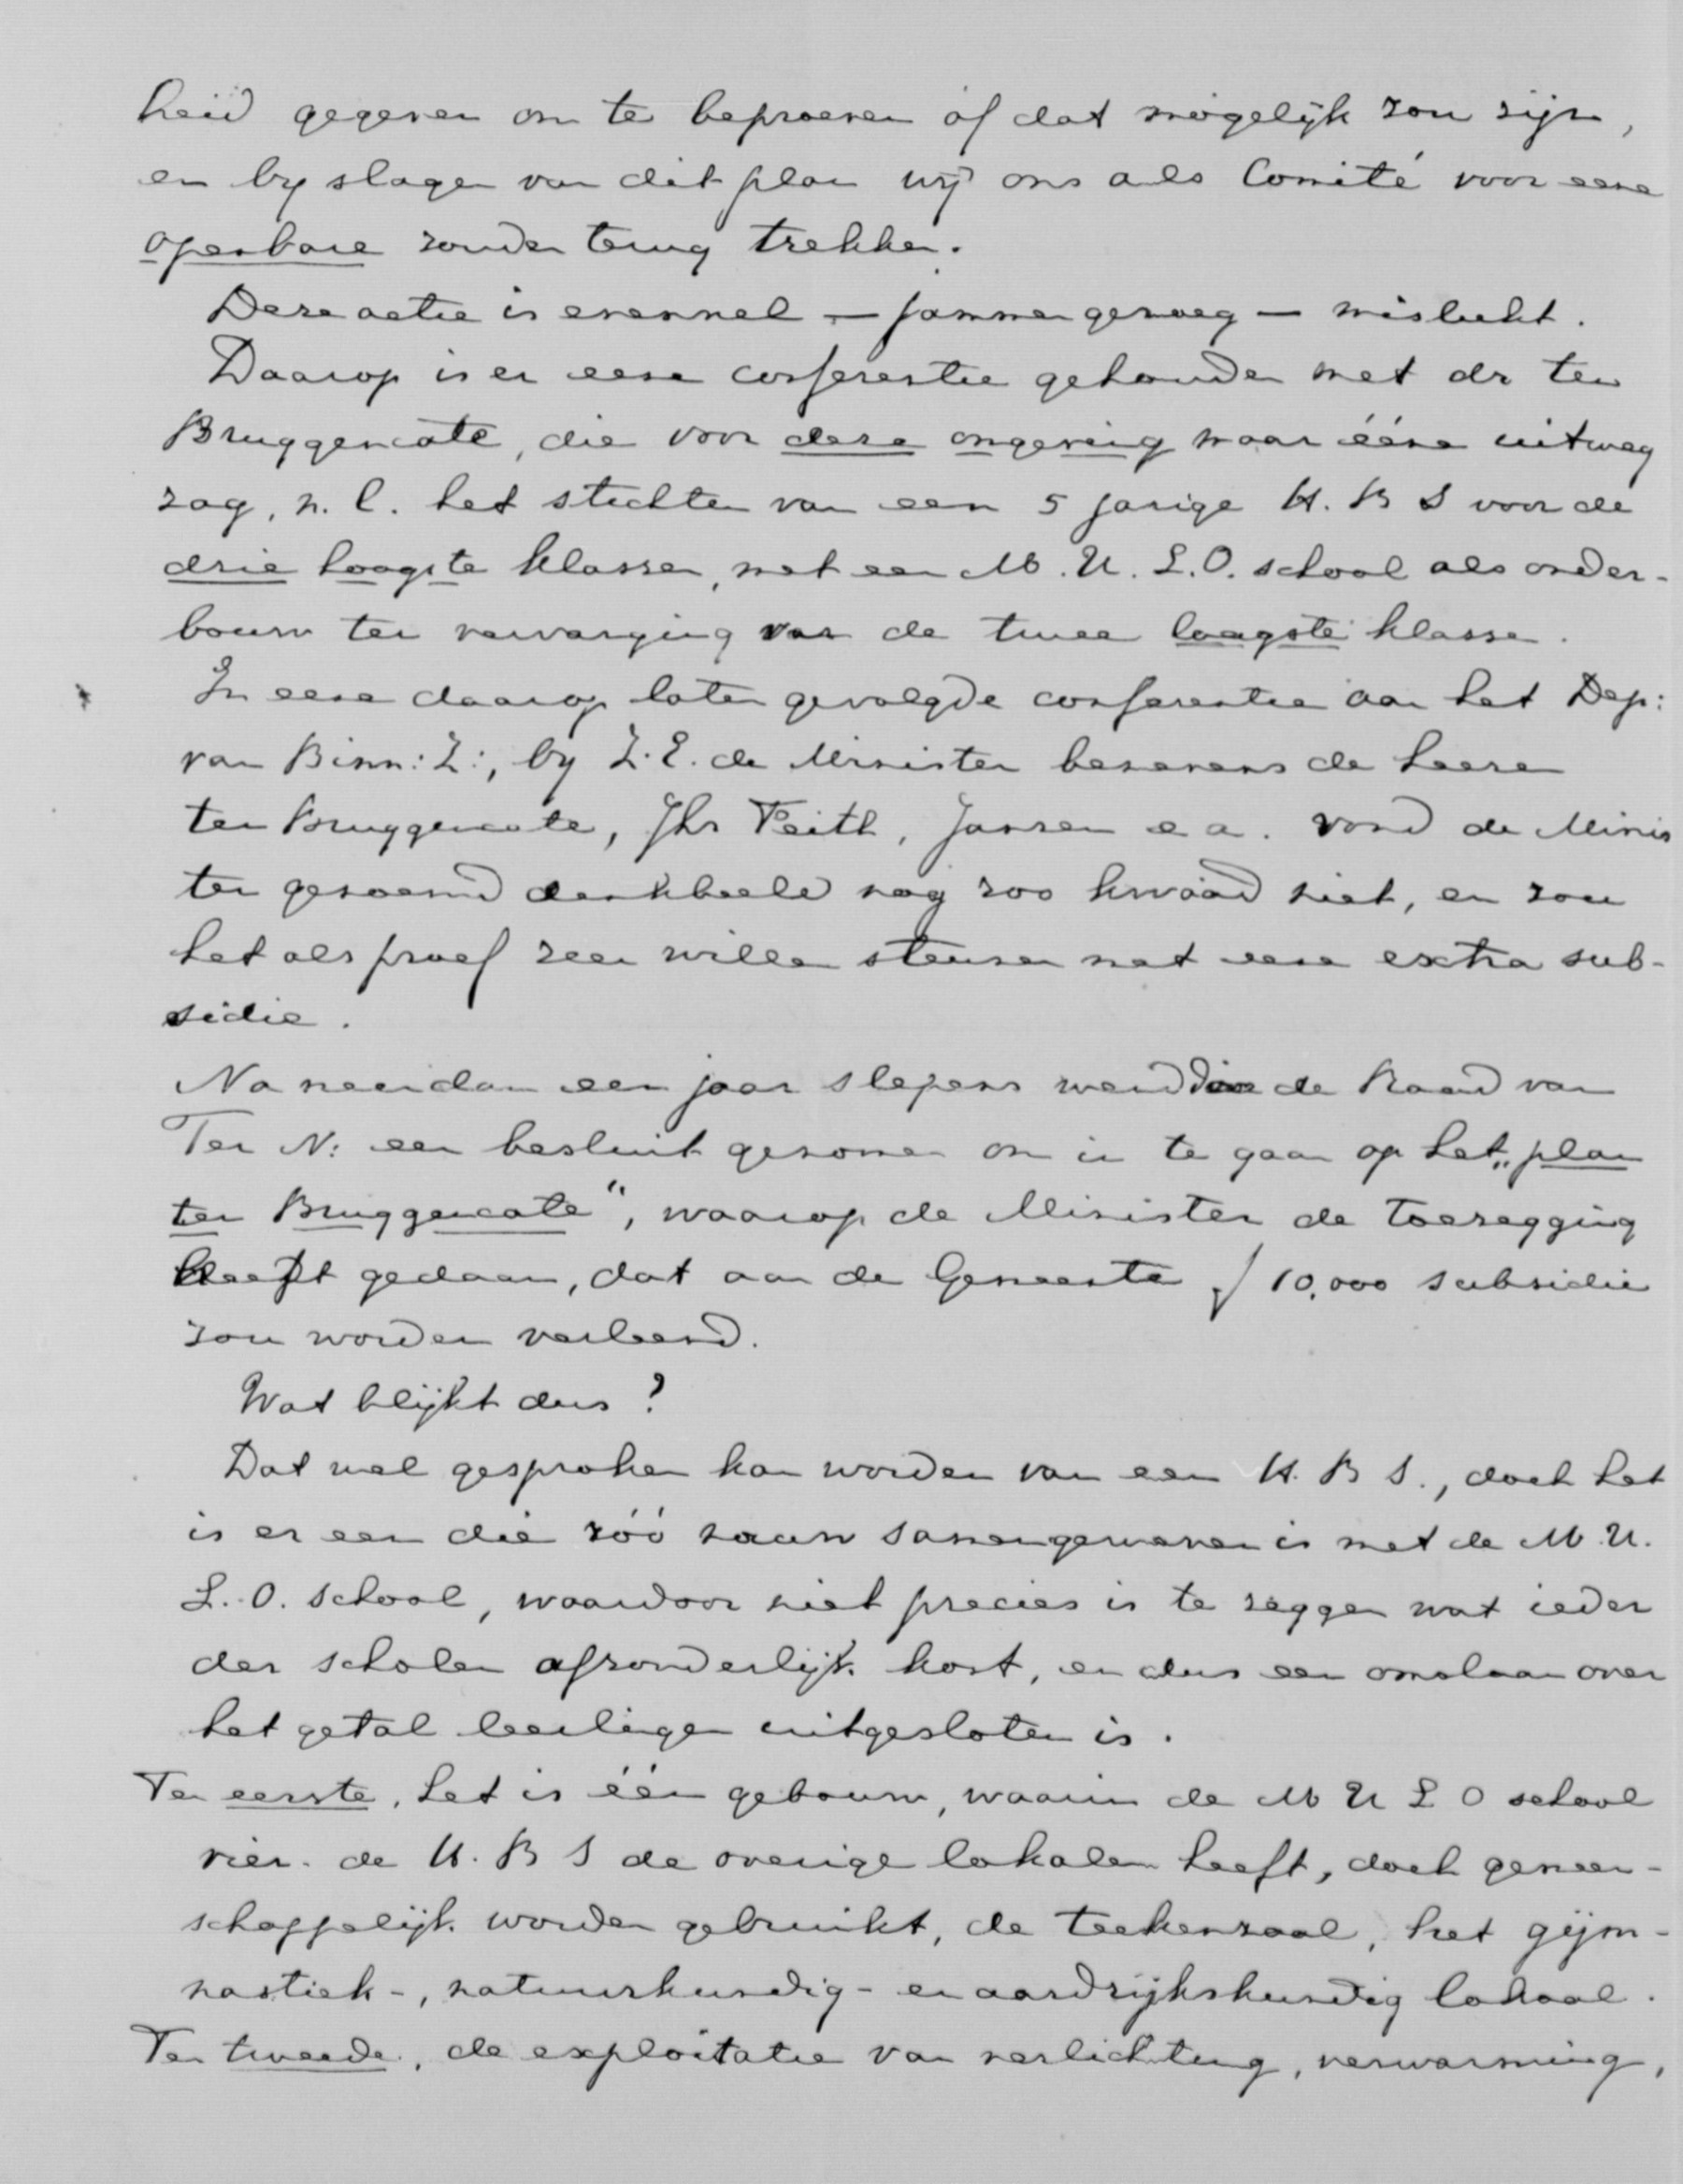 heid gegeven om te beproeven of dat mogelijk zou zijn,
en by slagen van dit plan wij ons als Comité voor eene
openbare zouden terug trekken.
Deze actie is evenwel — jammer genoeg — mislukt.
Daarop is er eene conferentie gehouden met dr ten
Bruggencate, die voor deze omgeving maar ééne uitweg
zag, n. l. het stichten van een 5 jarige H. B S voor de
drie hoogste klassen, met een M. U. L. O. school als onder-
bouw ter vervanging van de twee laagste klassen.
In eene daarop later gevolgde conferentie aan het Dep:
van Binn: Z:, by Z. E. de Minister benevens de heeren
ten Bruggencate, Jhr Feith, Jansen e a. vond de Minis
ter genoemd denkbeeld nog zoo kwaad niet, en zou
het als proef zeer willen steunen met eene extra sub-
sidie.
Na meer dan een jaar slepens werd door de Raad van
Ter N: een besluit genomen om in te gaan op het „plan
ten Bruggencate“, waarop de Minister de toezegging
heeft gedaan, dat aan de Gemeente ƒ 10.000 subsidie
zou worden verleend.
Wat blijkt dus?
Dat wel gesproken kan worden van een H. B S., doch het
is er een die zóó nauw samengeweven is met de M. U.
L. O. school, waardoor niet precies is te zeggen wat ieder
der scholen afzonderlijk kost, en dus een omslaan over
het getal leerlingen uitgesloten is.
Ten eerste, het is één gebouw, waarin de M U L O school
vier. de H. B S de overige lokalen heeft, doch gemeen-
schappelijk worden gebruikt, de teekenzaal, het gijm-
nastiek-, natuurkundig- en aardrijkskundig lokaal.
Ten tweede, de exploitatie van verlichting, verwarming,